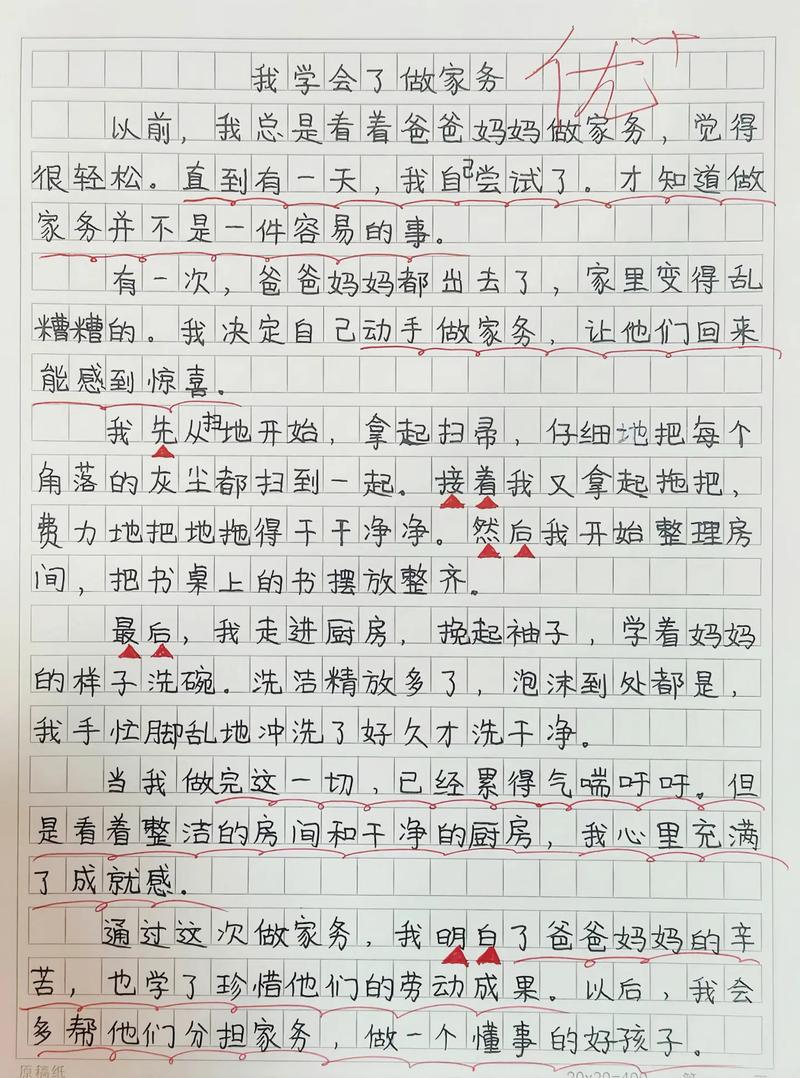 我学会了做家务
优
以前，我总是看着爸爸妈妈做家务，觉得
很轻松。直到有一天，我自己尝试了。才知道做
家务并不是一件容易的事。
有一次，爸爸妈妈都出去了，家里变得乱
糟糟的。我决定自己动手做家务，让他们回来
能感到惊喜。
我先从扫地开始，拿起扫帚，仔细地把每个
角落的灰尘都扫到一起。接着我又拿起拖把，
费力地把地拖得干干净净。然后我开始整理房
间，把书桌上的书摆放整齐。
最后，我走进厨房，挽起袖子，学着妈妈
的样子洗碗。洗洁精放多了，泡沫到处都是，
我手忙脚乱地冲洗了好久才洗干净。
当我做完这一切，已经累得气喘吁吁。但
是看着整洁的房间和干净的厨房，我心里充满
了成就感。
通过这次做家务，我明白了爸爸妈妈的辛
苦，也学了珍惜他们的劳动成果。以后，我会
多帮他们分担家务，做一个懂事的好孩子。
原稿纸
20x20=400